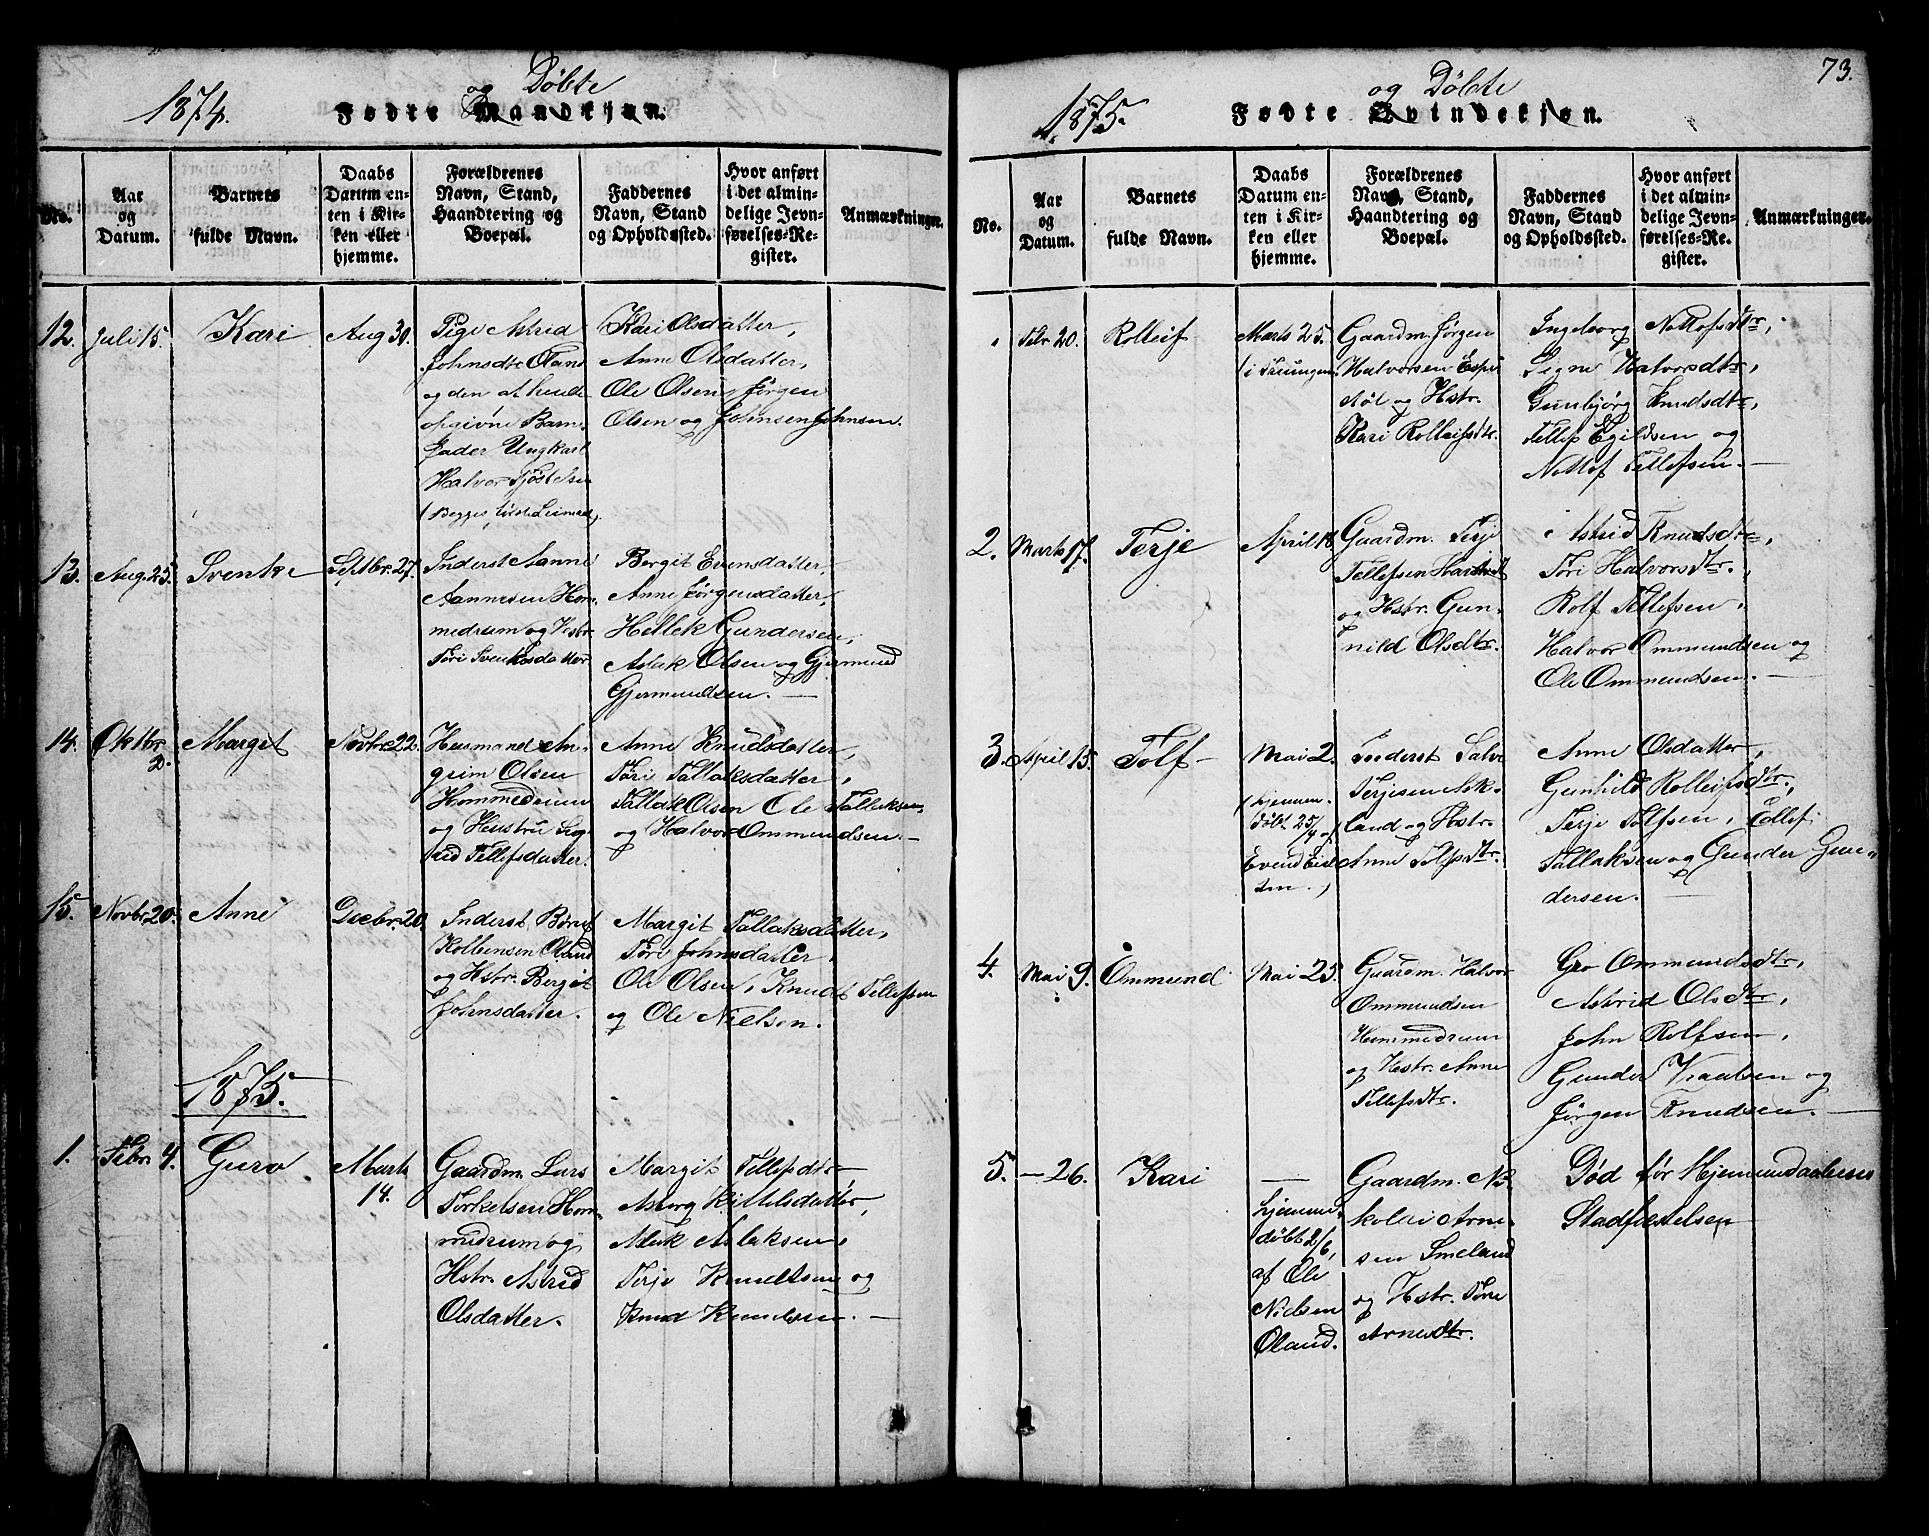 1874.
og Døbte
Fødte Mandkjøn.
No.
Aar og Datum.
Barnets fulde Navn.
Daabs Datum enten i Kirken eller hjemme.
Forældrenes Navn, Stand, Haandtering og Boepæl.
Faddernes Navn, Stand og Opholdssted.
Hvor anført i det almindelige Jevnførelses-Register.
Anmærkninger.
12. Juli 15. Kari Aug 30.
Pige Astrid
Johnsdtr Øland
og den af hende
opgivne Barn-
fader Ungkarl
Halvor
(Begges første Leiermaal).
Kari Olsdatter,
Anne Olsdatter,
Ole Olsen, Jørgen
Olsen og Johnsen Johnsen.
13. Aug. 25. Svenke Septbr. 27.
Inderst Aanne
Aannesen Hom-
medrum og Hstr.
Tori Svenkesdatter
Bergit Evensdatter,
Anne Jørgensdatter,
Hellek Gundersen,
Aslak Olsen og Gjermund
Gjermundsen. —
14. Oktbr 2. Margit Novbr. 22.
Husmand An-
grim Olsen
Hommedrum
og Hustru Sig-
rid Tellefsdatter.
Anne Knudsdatter,
Tori Tallaksdatter,
Tallak Olsen Ole Tallaksen,
og Halvor Ommundsen. —
15. Novbr 20. Anne Decbr. 20.
Inderst Børut
Kolbensen Øland
og Hstr. Bergit
Johnsdatter.
Margit Tallaksdatter,
Tori Johnsdatter,
Ole Olsen, Knudt Tellefsen
og Ole Nielsen.
1875.
1. Febr. 4. Guro Marts 14.
Gaardm. Lars
Torkelsen Hom-
medrum og
Hstr. Astrid
Olsdatter.
Margit Tellefsdtr
Asborg Kittelsdatter,
Aslak Aslaksen,
Terje Knudtsen og
Knud Knudsen. —
1875.
og Døbte
73.
Fødte Qvindekjøn.
No.
Aar og Datum.
Barnets fulde Navn.
Daabs Datum enten i Kirken eller hjemme.
Forældrenes Navn, Stand, Haandtering og Boepæl.
Faddernes Navn, Stand og Opholdssted.
Hvor anført i det almindelige Jevnførelses-Register.
Anmærkninger.
1 Febr 20. Rolleif Marts 25.
Gaardm. Jørgen
Halvorsen Espe
støl og Hstr.
Kari Rolleifsdtr.
Ingeborg Nottofsdtr,
Signe Halvorsdtr,
Gunbjørg Knudsdtr,
Tellef Egildsen og
Nottof Tellefsen. —
2. Marts 17. Terje April 18
Gaardm. Terje
Tellefsen
og Hstr. Gun-
nild Olsdtr.
Astrid Knudsdtr,
Tori Halvorsdtr,
Rolf Tellefsen,
Halvor Ommundsen og
Ole Ommundsen. —
3. April 15. Tolf Mai 2.
(hjemme-
døbt 25/4 af
Inderst Salve
Terjesen Ask-
land og Hstr.
Anne Tolfsdtr.
Anne Olsdatter,
Gunhild Rolleifsdtr,
Terje Tolfsen, Tellef
Tallaksen og Gunder Gun-
dersen. —
4. Mai 9. Ommund Mai 23.
Gaardm. Halvor
Ommundsen
Hommedrum
og Hstr. Anne
Tellefsdtr.
Gro Ommundsdtr,
Astrid Olsdtr,
John Rolfsen,
Gunder Vraalsen og
Jørgen Knudsen. —
5. — 26. Kari —
hjemme-
døbt 2/6,
af Ole
Nielsen
Øland.
Gaardm. Ni-
kolai Arne-
sen Smeland
og Hstr. Tone
Arnesdtr.
Død før Hjemmedaabens
Stadfæstelsen